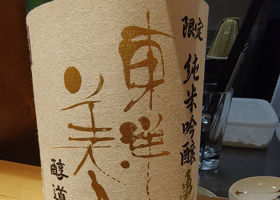 限定
純米吟醸
東洋美人
醇道